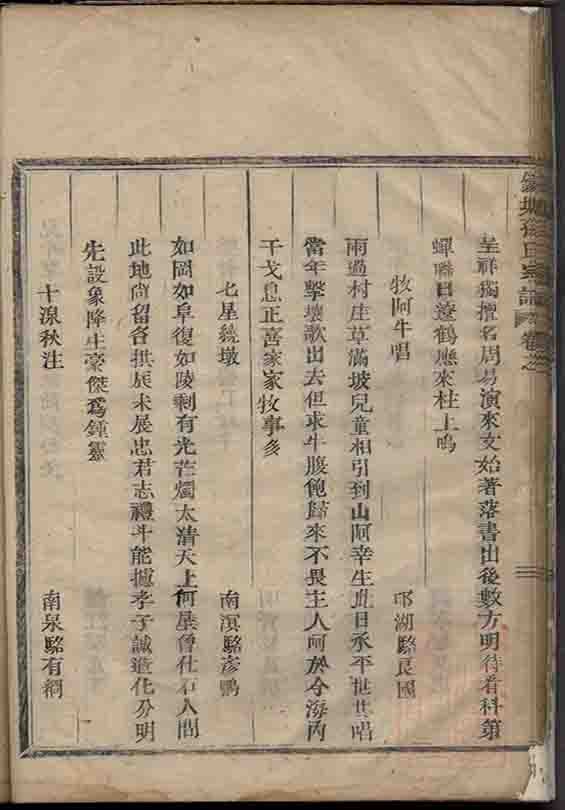 呈祥獨擅名周易演來文始著落書出後數方明待看科第
蟬聯日遼鶴應來柱上鳴
牧阿牛唱 邛湖駱良國
雨過村庄草滿坡兒童相引到山阿幸生此日承平世共唱
當年擊壤歌出去但求牛腹飽歸來不畏主人呵於今海內
干戈息正喜家家牧事多
七星繞墩 南溟駱彥鵬
如岡如阜復如陵剩有光芒燭太清天上何星曾化石人間
此地尚留名拱辰未展忠君志禮斗能攄孝子誠造化分明
先設象降生豪傑爲鍾靈
十源秋注 南泉駱有綱
氏宗譜 卷之